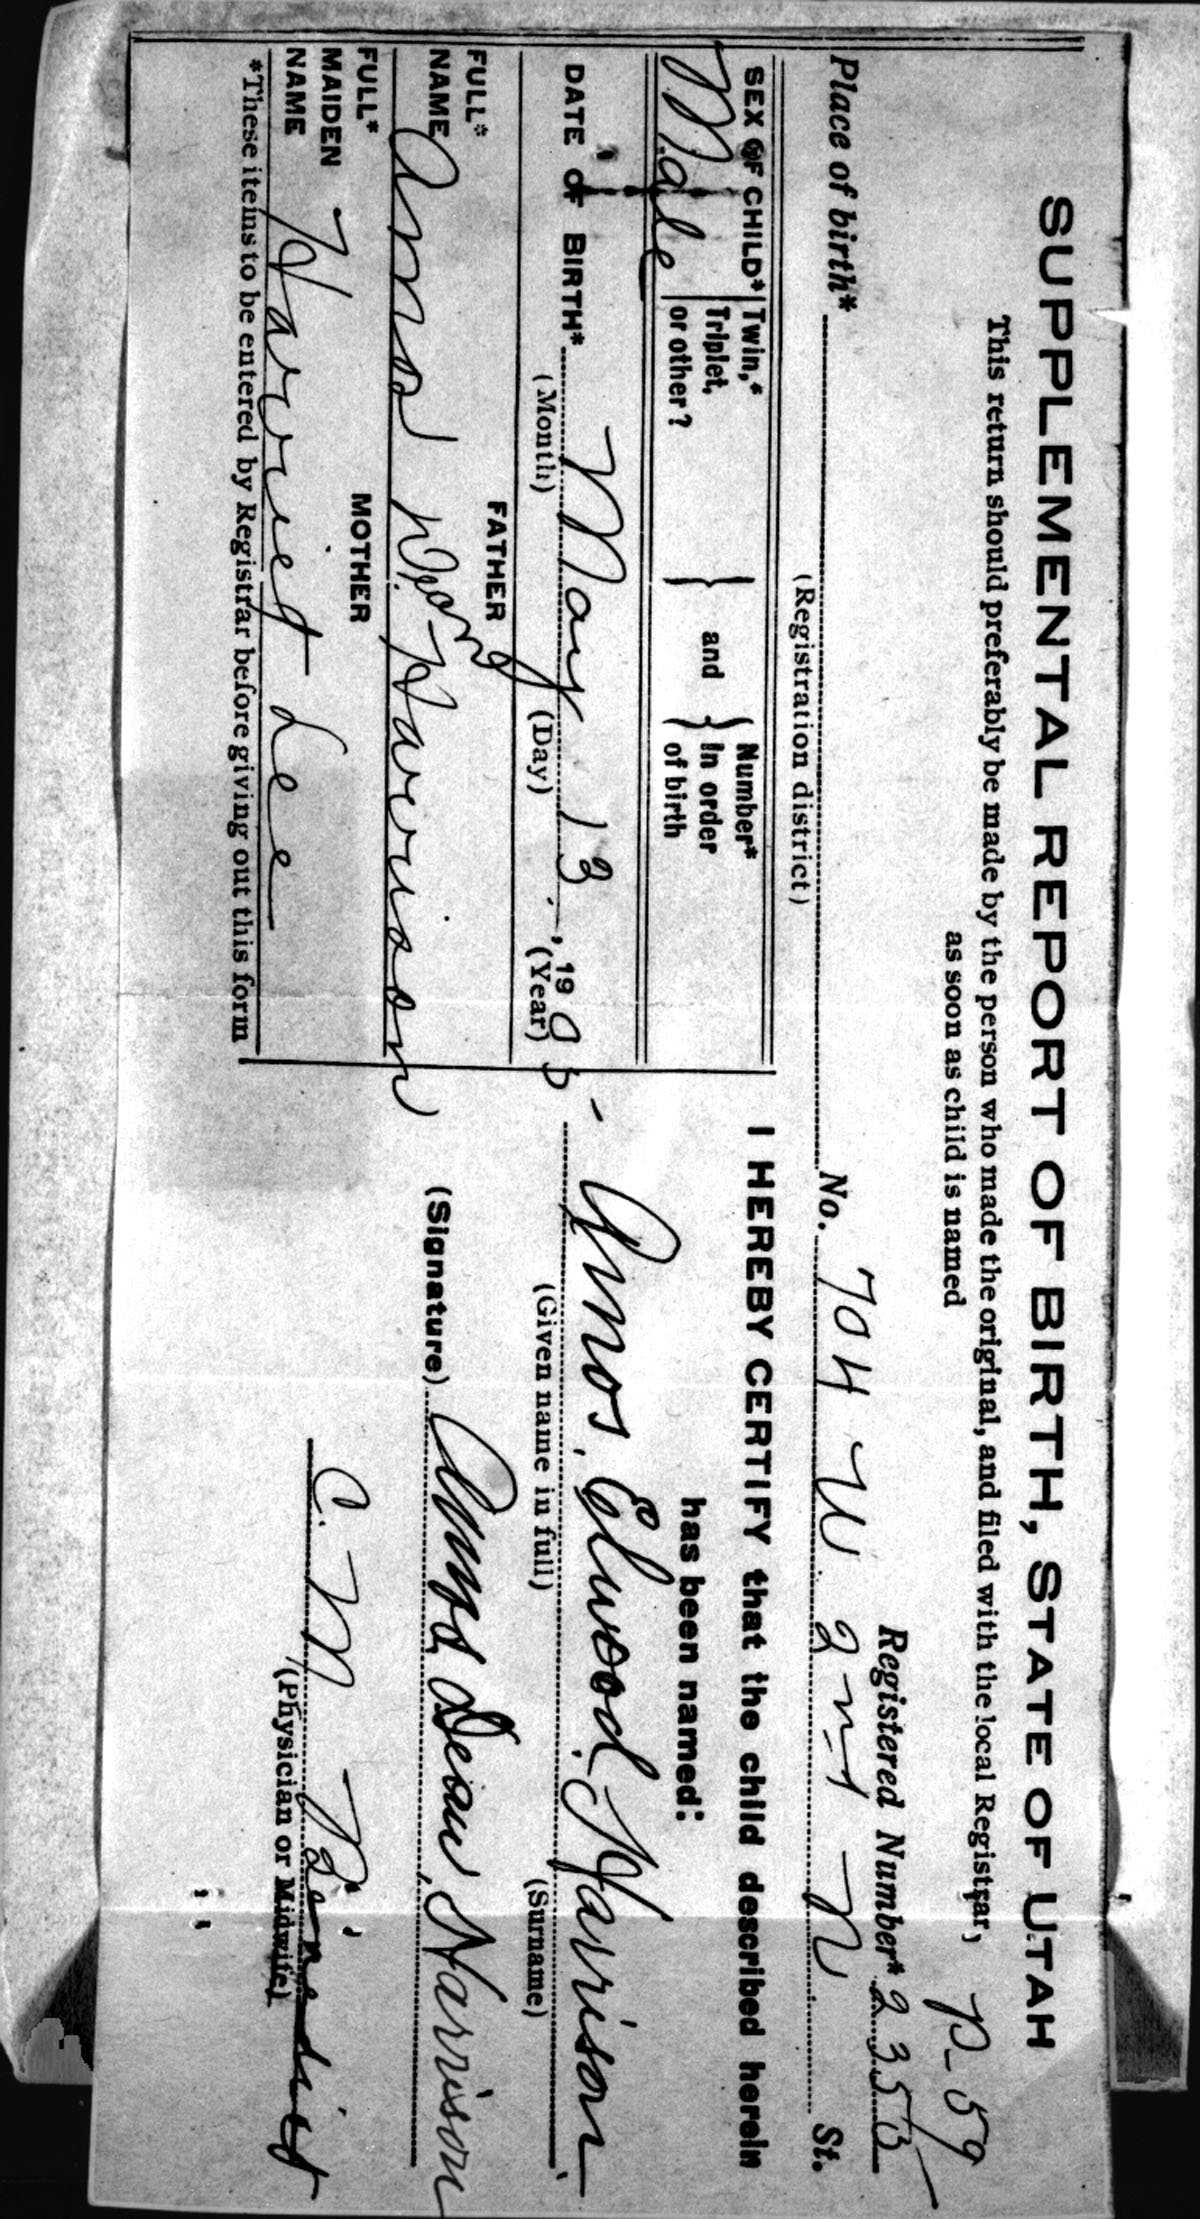 P-59
SUPPLEMENTAL REPORT OF BIRTH, STATE OF UTAH
This return should preferably be made by the person who made the original, and filed with the local Registrar,
as soon as child is named
Registered Number* 2353
Place of birth* No. 704 W 2nd N St.
(Registration district)
SEX OF CHILD* Male
Twin,* Triplet, or other? } and { Number* in order of birth
DATE OF BIRTH* May 13, 1905
(Month) (Day) (Year)
FATHER
FULL* NAME Amos Dean Harrison
MOTHER
FULL* MAIDEN NAME Harriet Lee
*These items to be entered by Registrar before giving out this form
I HEREBY CERTIFY that the child described herein
has been named:
Amos Elwood Harrison
(Given name in full) (Surname)
(Signature) Amos Dean Harrison
C. M. Benedict
(Physician or Midwife)